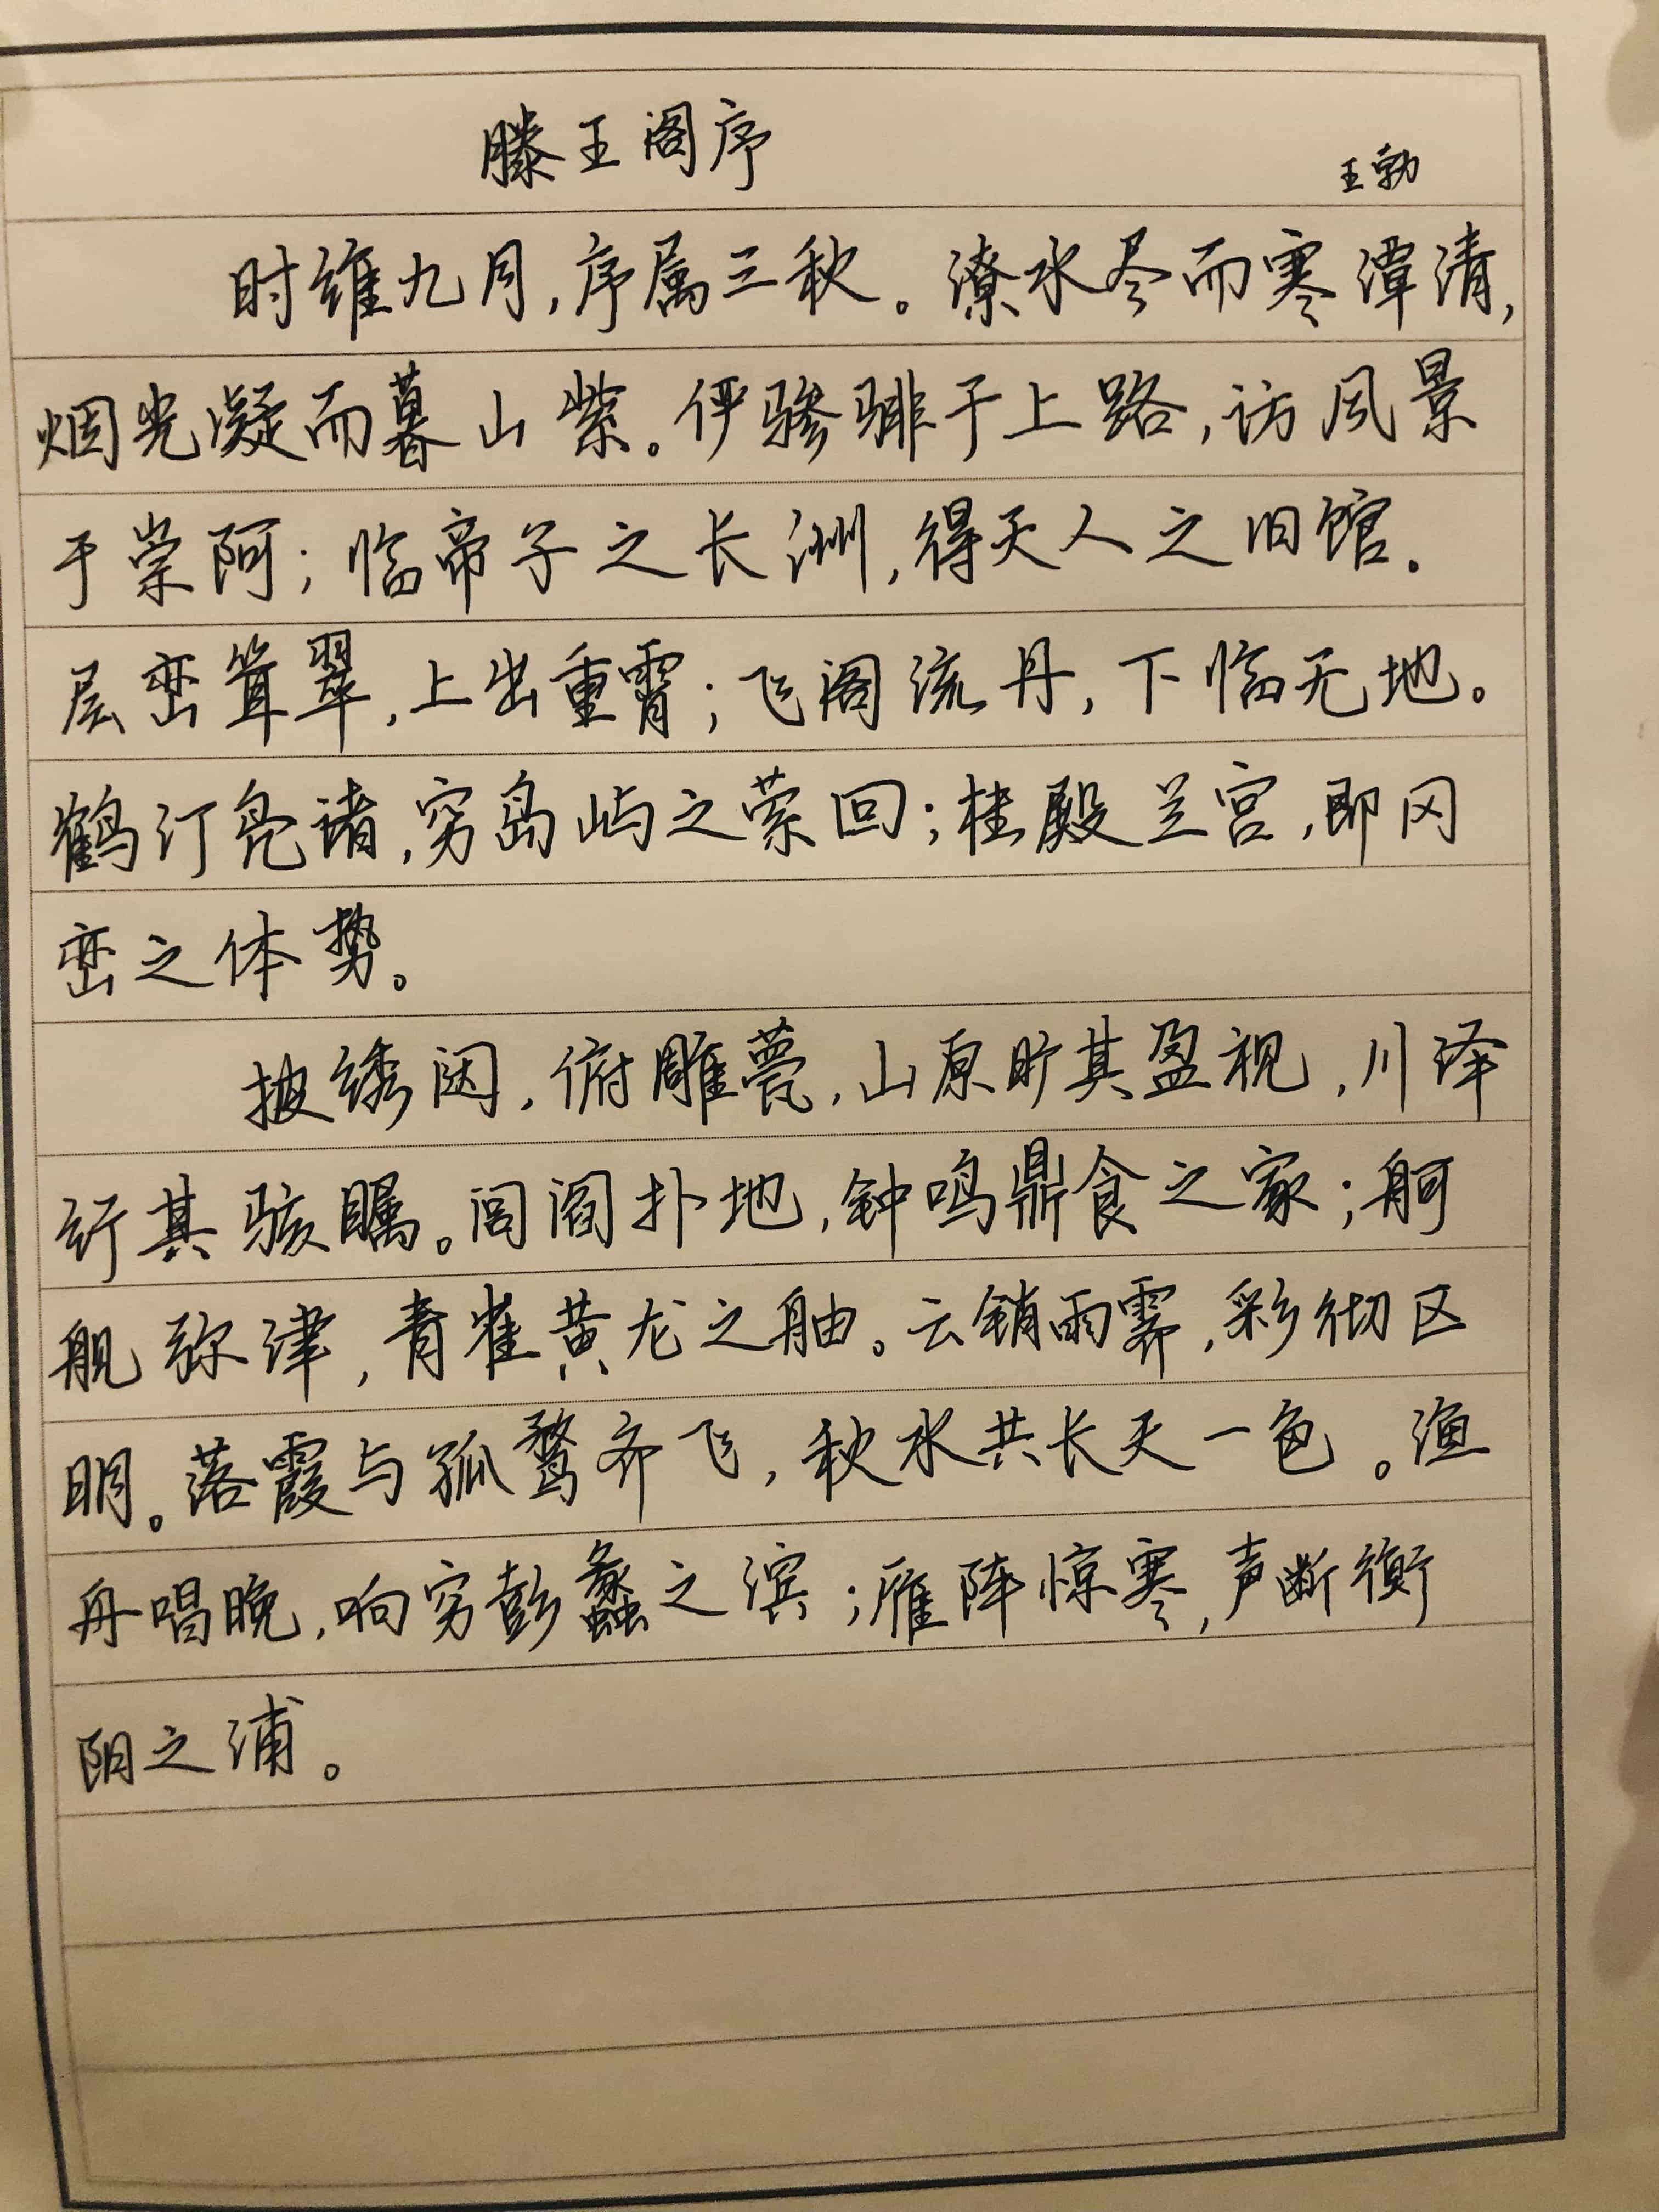 滕王阁序
王勃
时维九月，序属三秋。潦水尽而寒潭清，
烟光凝而暮山紫。俨骖騑于上路，访风景
于崇阿；临帝子之长洲，得天人之旧馆.
层峦耸翠，上出重霄；飞阁流丹，下临无地。
鹤汀凫诸，穷岛屿之萦回；桂殿兰宫，即冈
峦之体势。
披绣闼，俯雕甍，山原旷其盈视，川泽
纡其骇瞩。闾阎扑地，钟鸣鼎食之家；舸
舰弥津，青雀黄龙之舳。云销雨霁，彩彻区
明。落霞与孤鹜齐飞，秋水共长天一色。渔
舟唱晚，响穷彭蠡之滨；雁阵惊寒，声断衡
阴之浦。